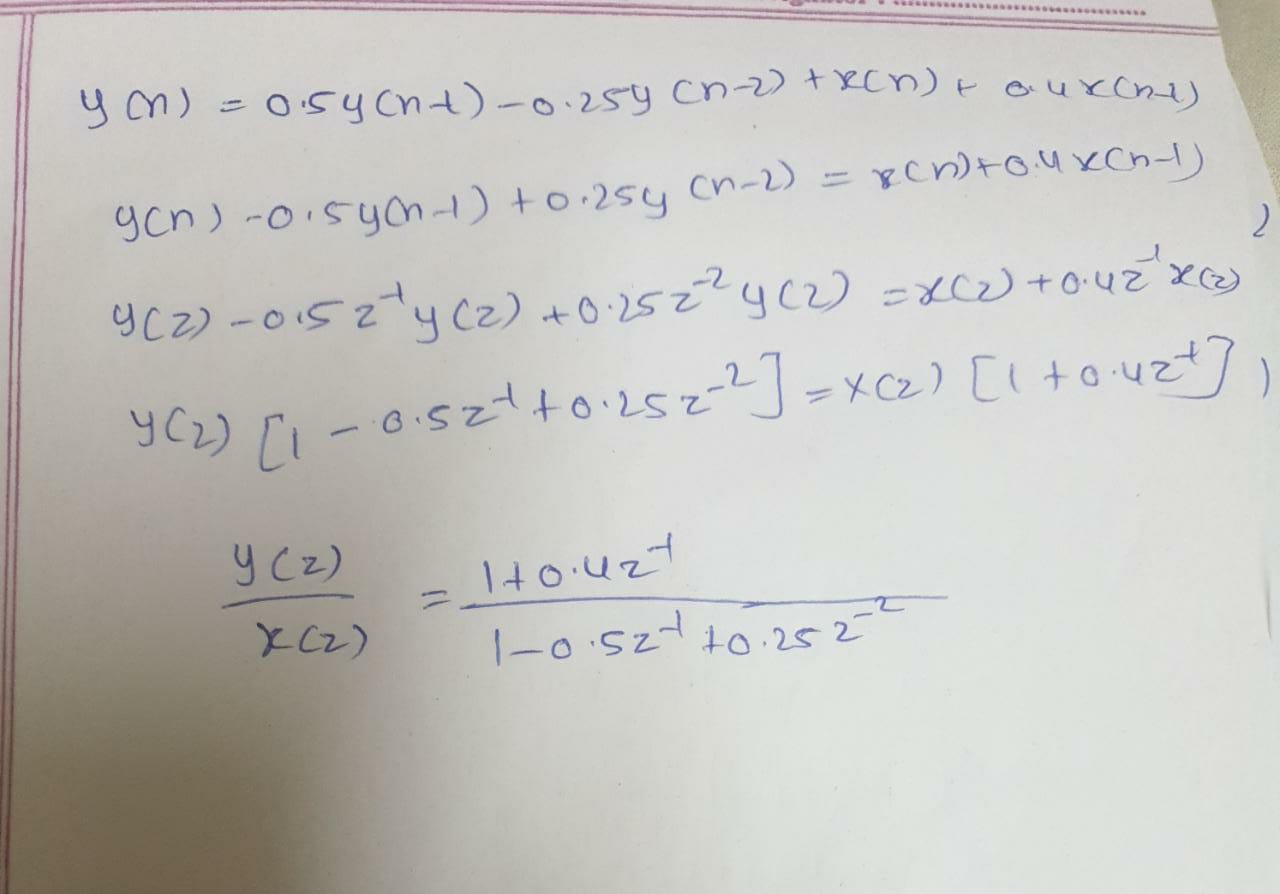 y(n) = 0.5y(n-1) - 0.25y(n-2) + x(n) + 0.4x(n-1)
y(n) - 0.5y(n-1) + 0.25y(n-2) = x(n) + 0.4x(n-1)
y(z) - 0.5z⁻¹y(z) + 0.25z⁻²y(z) = x(z) + 0.4z⁻¹x(z)
y(z) [1 - 0.5z⁻¹ + 0.25z⁻²] = x(z) [1 + 0.4z⁻¹]
y(z) / x(z) = 1+0.4z⁻¹ / 1-0.5z⁻¹+0.25z⁻²